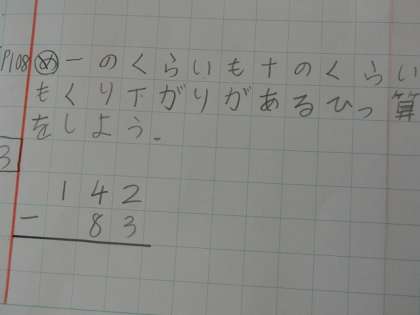 P108 め 一のくらいも十のくらい
もくり下がりがあるひっ算
をしよう。
3
142
- 83